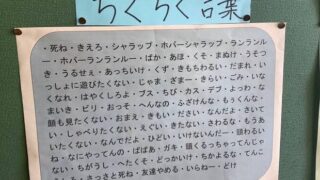 ちくちく言葉
・死ね・きえろ・シャラップ・ホバーシャラップ・ランランルー
・ホバーランランルー・ばか・あほ・くそ・まぬけ・うそつ
き・うるせぇ・あっちいけ・くず・きもちわるい・だまれ・い
っしょに遊びたくない・じゃま・ざまー・きらい・ごみ・いな
くなれ・はやくしろよ・ブス・ちび・カス・デブ・よわっ・な
まいき・ビリ・おっそ・へんなの・ふざけんな・もぅくんな・
顔も見たくない・おまえ・きもい・ださい・なんだよ・さいて
い・しゃべりたくない・えぐい・きたない・さわるな・もうあ
いたくない・なんでだよ・ひどい・いけないんだー・頭わるい
ね・なにやってんの・ばばあ・ガキ・頭くるっちゃってんじゃ
ない・ちがうし・へたくそ・どっかいけ・ちかよるな・てんこ
さっさと死ね・友達やめる・いらねー・どけ